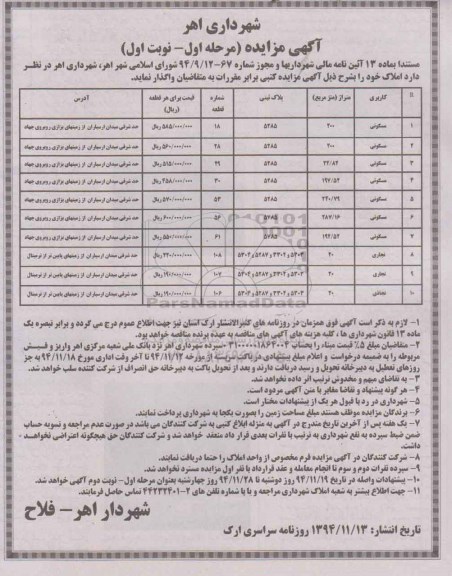 شهرداری اهر
آگهی مزایده (مرحله اول- نوبت اول)
مستندا بماده ۱۳ آئین نامه مالی شهرداریها و مجوز شماره ۶۷-۹۴/۹/۱۲ شورای اسلامی شهر اهر، شهرداری اهر در نظر
دارد املاک خود را بشرح ذیل آگهی مزایده کتبی برابر مقررات به متقاضیان واگذار نماید.
کاربری متراژ (متر مربع) پلاک ثبتی شماره قطعه قیمت برای هر قطعه (ریال) آدرس
۱ مسکونی ۲۰۰ ۵۲۸۵ ۱۸ ۵۸۵/۰۰۰/۰۰۰ ریال حد شرقی میدان ارسباران از زمینهای برازی روبروی جهاد
۲ مسکونی ۲۰۰ ۵۲۸۵ ۲۸ ۵۶۰/۰۰۰/۰۰۰ ریال حد شرقی میدان ارسباران از زمینهای برازی روبروی جهاد
۳ مسکونی ۵۲۸۵ ۲۹ حد شرقی میدان ارسباران از زمینهای برازی روبروی جهاد
۴ مسکونی ۱۹۷/۵۴ ۵۲۸۵ ۳۰ حد شرقی میدان ارسباران از زمینهای برازی روبروی جهاد
۵ مسکونی ۲۲۰/۷۹ ۵۲۸۵ ۵۳ ۵۷۰/۰۰۰/۰۰۰ ریال حد شرقی میدان ارسباران از زمینهای برازی روبروی جهاد
۶ مسکونی ۲۸۷/۱۶ ۵۲۸۵ ۵۶ ۶۰۰/۰۰۰/۰۰۰ ریال حد شرقی میدان ارسباران از زمینهای برازی روبروی جهاد
۷ مسکونی ۱۹۴/۵۴ ۵۲۸۵ ۶۱ ۵۵۰/۰۰۰/۰۰۰ ریال حد شرقی میدان ارسباران از زمینهای برازی روبروی جهاد
۸ تجاری ۲۰ ۱۰۸ حد شرقی میدان ارسباران از زمینهای پایین تر از ترمینال
۹ تجاری ۲۰ ۱۰۷ حد شرقی میدان ارسباران از زمینهای پایین تر از ترمینال
۱۰ تجاری ۲۰ ۱۰۶ حد شرقی میدان ارسباران از زمینهای پایین تر از ترمینال
۱- لازم به ذکر است آگهی فوق همزمان در روزنامه های کثیرالانتشار ارک استان نیز جهت اطلاع عموم درج می گردد و برابر تبصره یک
ماده ۱۳ قانون شهرداری ها ، کلیه هزینه های آگهی های مناقصه به عهده برنده مناقصه خواهد بود.
۲- متقاضیان مبلغ ۵٪ قیمت مبنا را بحساب ۳۱۰۰۰۰۱۱۸۶۴۰۰۴ سپرده شهرداری اهر نزد بانک ملی شعبه مرکزی اهر واریز و فیش
مربوطه را به ضمیمه درخواست و اعلام مبلغ پیشنهادی در پاکت سربسته از مورخه ۹۴/۱۱/۱۲ تا آخر وقت اداری مورخ ۹۴/۱۱/۱۸ به جز
روزهای تعطیل به دبیرخانه تحویل و رسید دریافت دارند و بعد از تحویل پاکت به دبیرخانه حق انصراف از شرکت کننده سلب خواهد شد.
۳- به تقاضای مبهم و مخدوش ترتیب اثر داده نخواهد شد.
۴- هر گونه پیشنهاد و تقاضا مغایر با متن آگهی مردود است.
۵- شهرداری در رد یا قبول هر یک از پیشنهادات مختار است.
۶- برندگان مزایده موظف هستند مبلغ مساحت زمین را بصورت یکجا به شهرداری پرداخت نمایند.
۷- یک هفته پس از آخرین تاریخ مندرج در آگهی به منزله ابلاغ کتبی به شرکت کنندگان می باشد در صورت عدم مراجعه و تسویه حساب
ضمن ضبط سپرده به نفع شهرداری به ترتیب با نفرات بعدی قرار داد منعقد خواهد شد و شرکت کنندگان حق هیچگونه اعتراضی نخواهند
داشت.
۸- شرکت کنندگان در آگهی مزایده فرم مخصوص از واحد املاک را حتما دریافت نمایند.
۹- سپرده نفرات دوم و سوم تا انجام معامله و عقد قرارداد با نفر اول مزایده مسترد نخواهد شد.
۱۰- پیشنهادات واصله در تاریخ ۹۴/۱۱/۱۹ روز دوشنبه تا ۹۴/۱۱/۲۸ روز چهارشنبه بعنوان مرحله اول- نوبت دوم آگهی خواهد شد.
۱۱- جهت اطلاع بیشتر به شعبه املاک شهرداری مراجعه و یا با شماره تلفن های ۲-۴۴۲۳۲۴۰۱ تماس حاصل فرمایند.
شهردار اهر- فلاح
تاریخ انتشار: ۱۳۹۴/۱۱/۱۳ روزنامه سراسری ارک
ParsNamadData